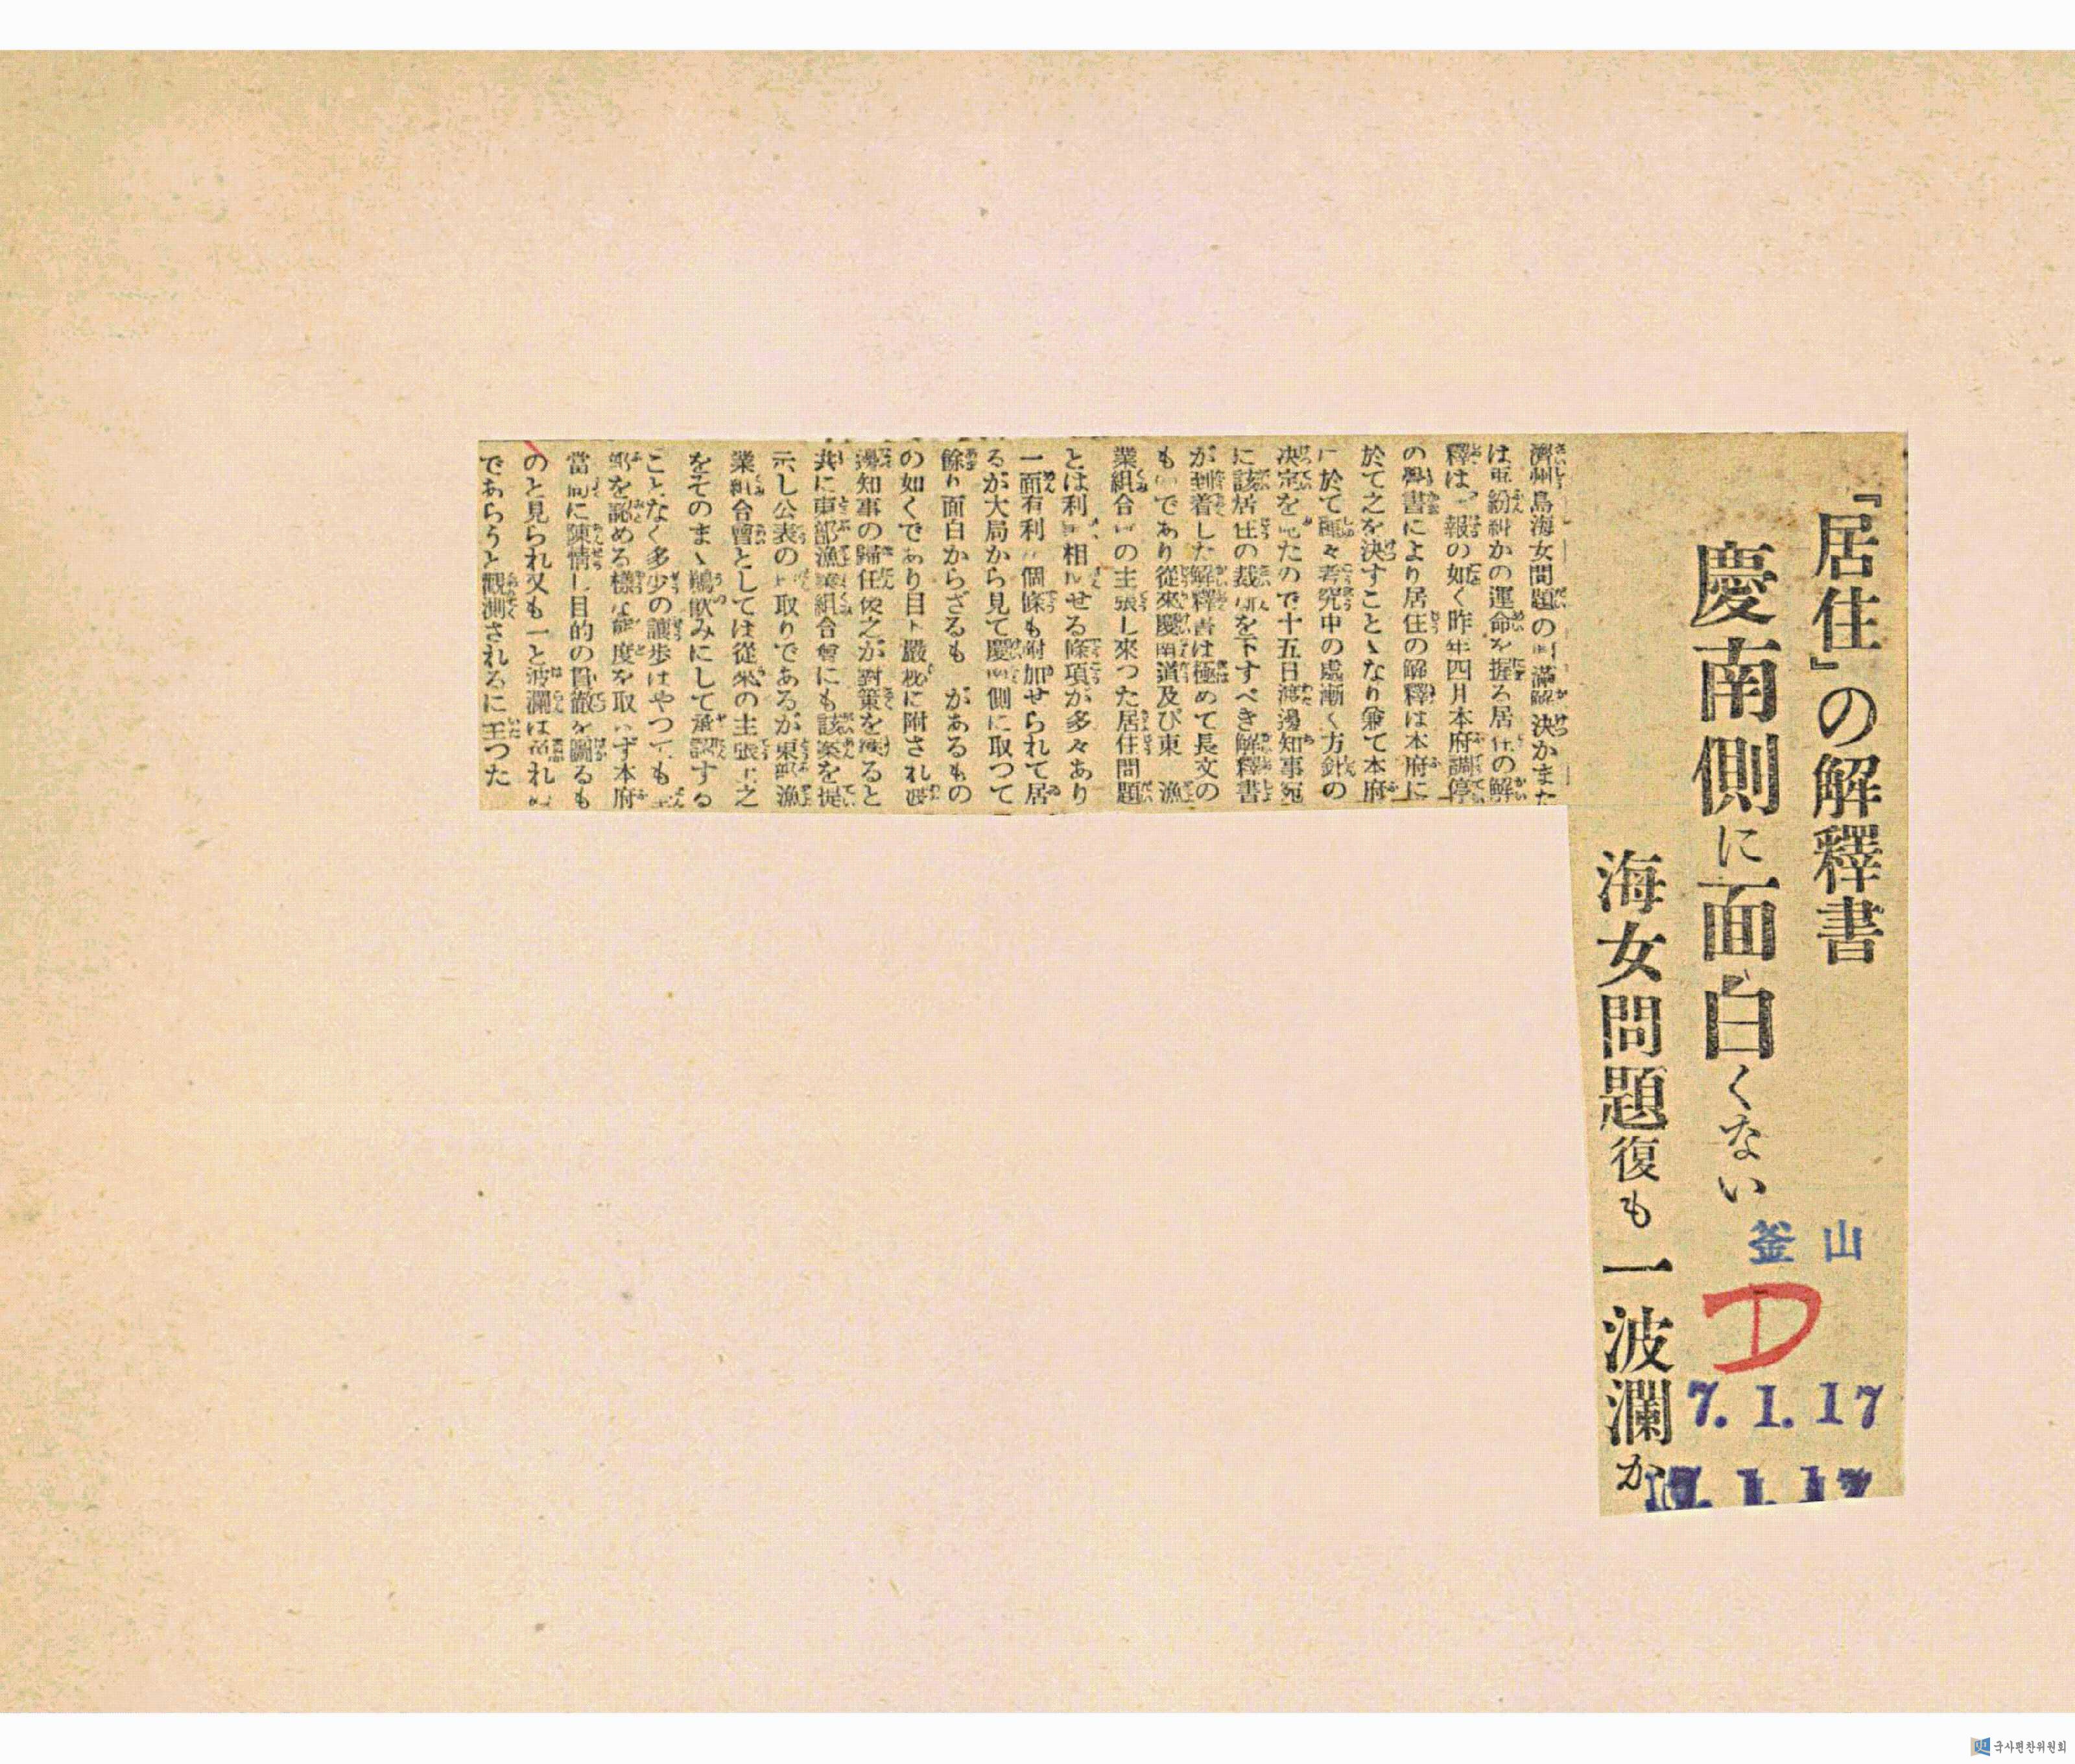 『居住』の解釋書
慶南側に面白くない
海女問題復も一波瀾か
釜山
D
7.1.17
7.1.17
濟州島海女問題の滿解決かまた
は再紛糾かの運命を握る居住の解
釋は報の如く昨年四月本府調停
の書により居住の解釋は本府に
於て之を決すことゝなり兼て本府
に於て種々考究中の處漸く方針の
決定を見たので十五日渡邊知事宛
に該居住の裁を下すべき解釋書
が到着した解釋書は極めて長文の
もであり從來慶南道及び東漁
業組合の主張し來つた居住問題
とは利相せる條項が多々あり
一面有利個條も附加せられて居
るが大局から見て慶側に取つて
餘り面白からざるもがあるもの
の如くであり目下嚴秘に附され渡
邊知事の歸任後之が對策を練ると
共に東部漁業組合會にも該案を提
示し公表の取りであるが東部漁
業組合會としては從來の主張上之
をそのまゝ鵜飲みにして承認する
ことなく多少の讓歩はやつても
を認める樣な態度を取らず本府
當局に陳情し目的の貫徹を圖るも
のと見られ又も一と波瀾はれ
であらうと觀測されるに至つた
국사편찬위원회